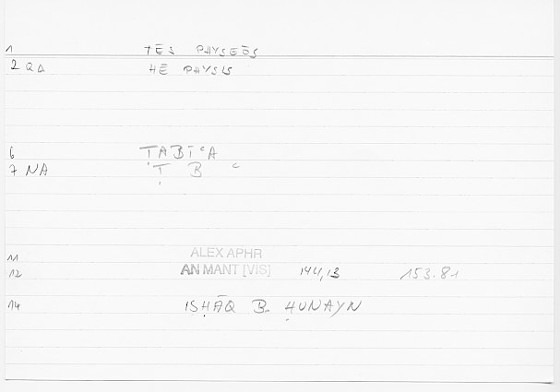 1 TĒS PHYSEŌS
2 QA HĒ PHYSIS
6 ṬABĪʿA
7 NA Ṭ B ʿ
11 ALEX APHR
12 AN MANT [VIS] 144,13 153.81
14 ISḤĀQ B. ḤUNAYN